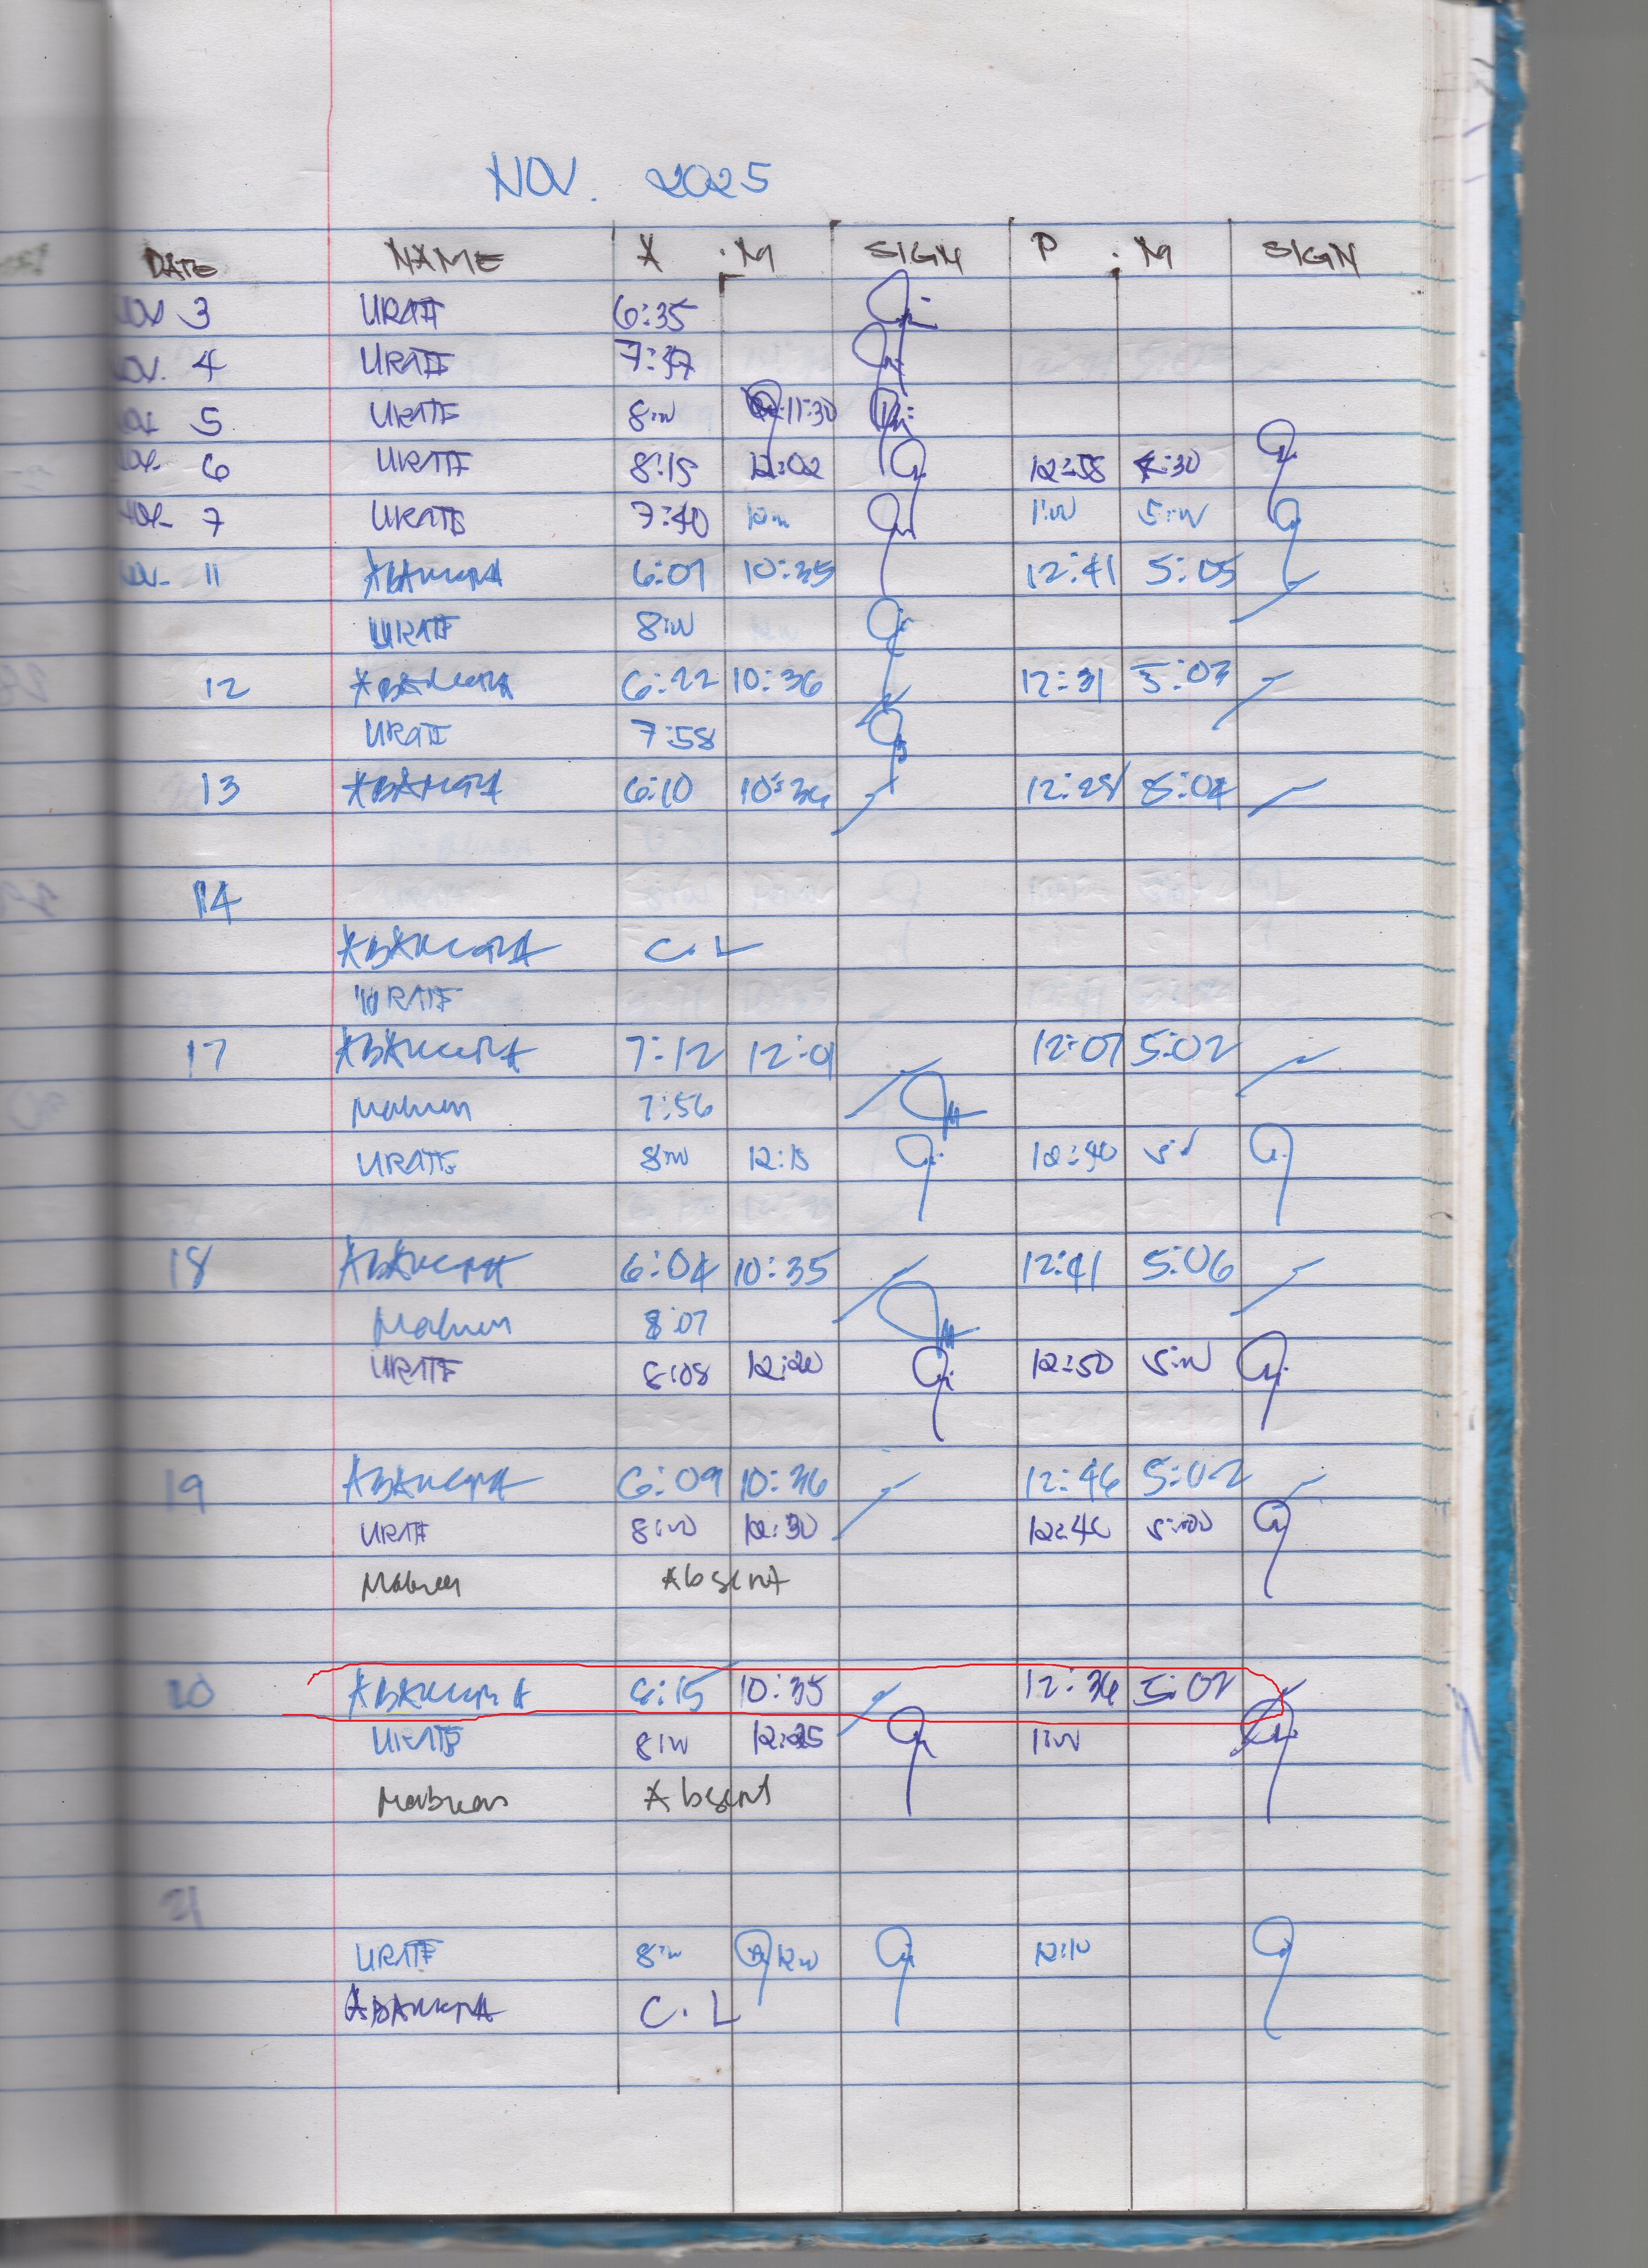 NOV. 2025
DATE NAME A.M SIGN P.M SIGN
NOV 3 URATE 6:35
NOV. 4 URATE 7:37
NOV 5 URATE 8:00 11:30
NOV- 6 URATE 8:15 12:02 12:58 4:30
NOV- 7 URATE 7:40 1:00 5:00
NOV- 11 6:07 10:35 12:41 5:05
URATE 8:00
12 6:22 10:36 12:31 5:03
URATE 7:58
13 6:10 10:36 12:28 5:04
14
C.L
URATE
17 7:12 12:01 12:07 5:02
7:56
URATE 8:00 12:15 12:40
18 6:04 10:35 12:41 5:06
8:07
URATE 8:08 12:20 12:50 5:00
19 6:09 10:36 12:46 5:02
URATE 8:00 12:30 12:40 5:00
Absent
20 6:15 10:35 12:36 5:02
URATE 8:00 12:25 1:00
Absent
21
URATE 8:00 12:00 12:10
C.L